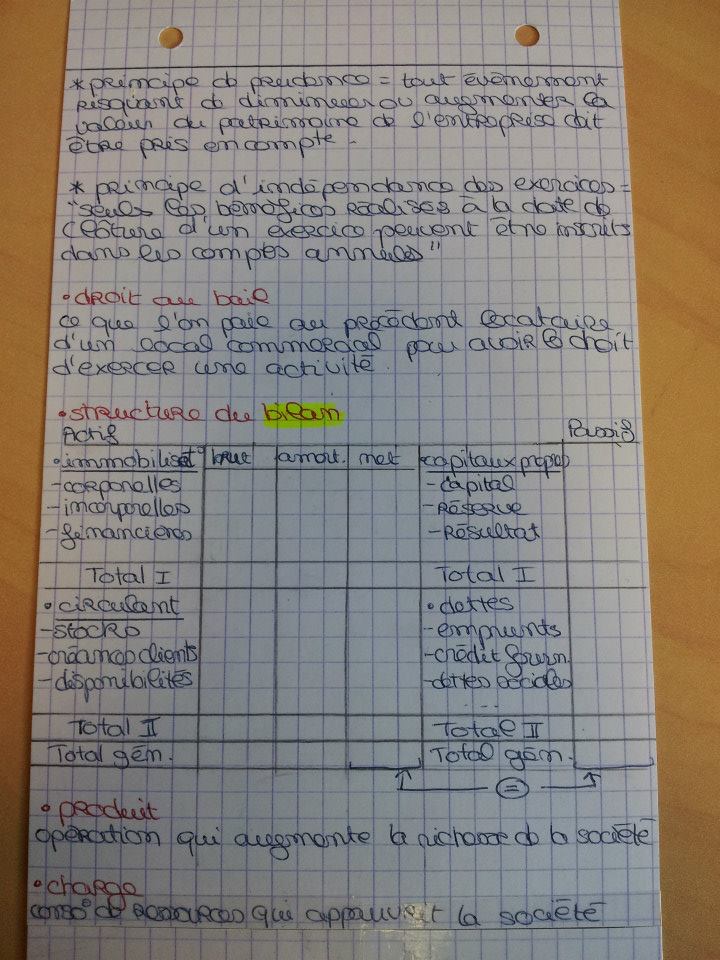 * principe de prudence = tout évènement
risquant de diminuer ou augmenter la
valeur du patrimoine de l'entreprise doit
être pris en compte.
* principe d'indépendance des exercices =
"seuls les bénéfices réalisés à la date de
clôture d'un exercice peuvent être inscrits
dans les comptes annuels"
• droit au bail
ce que l'on paie au précédent locataire
d'un local commercial pour avoir le droit
d'exercer une activité.
• structure du bilan
Actif Passif
• immobilisat° brut amort. net capitaux propres
- corporelles - capital
- incorporelles - Réserve
- financières - Résultat
Total I Total I
• circulant • dettes
- stocks - emprunts
- créances clients - crédit fourn.
- disponibilités - dettes sociales
.....
Total II Total II
Total gén. Total gén.
=
• produit
opération qui augmente la richesse de la société
• charge
conso° de ressources qui appauvrit la société